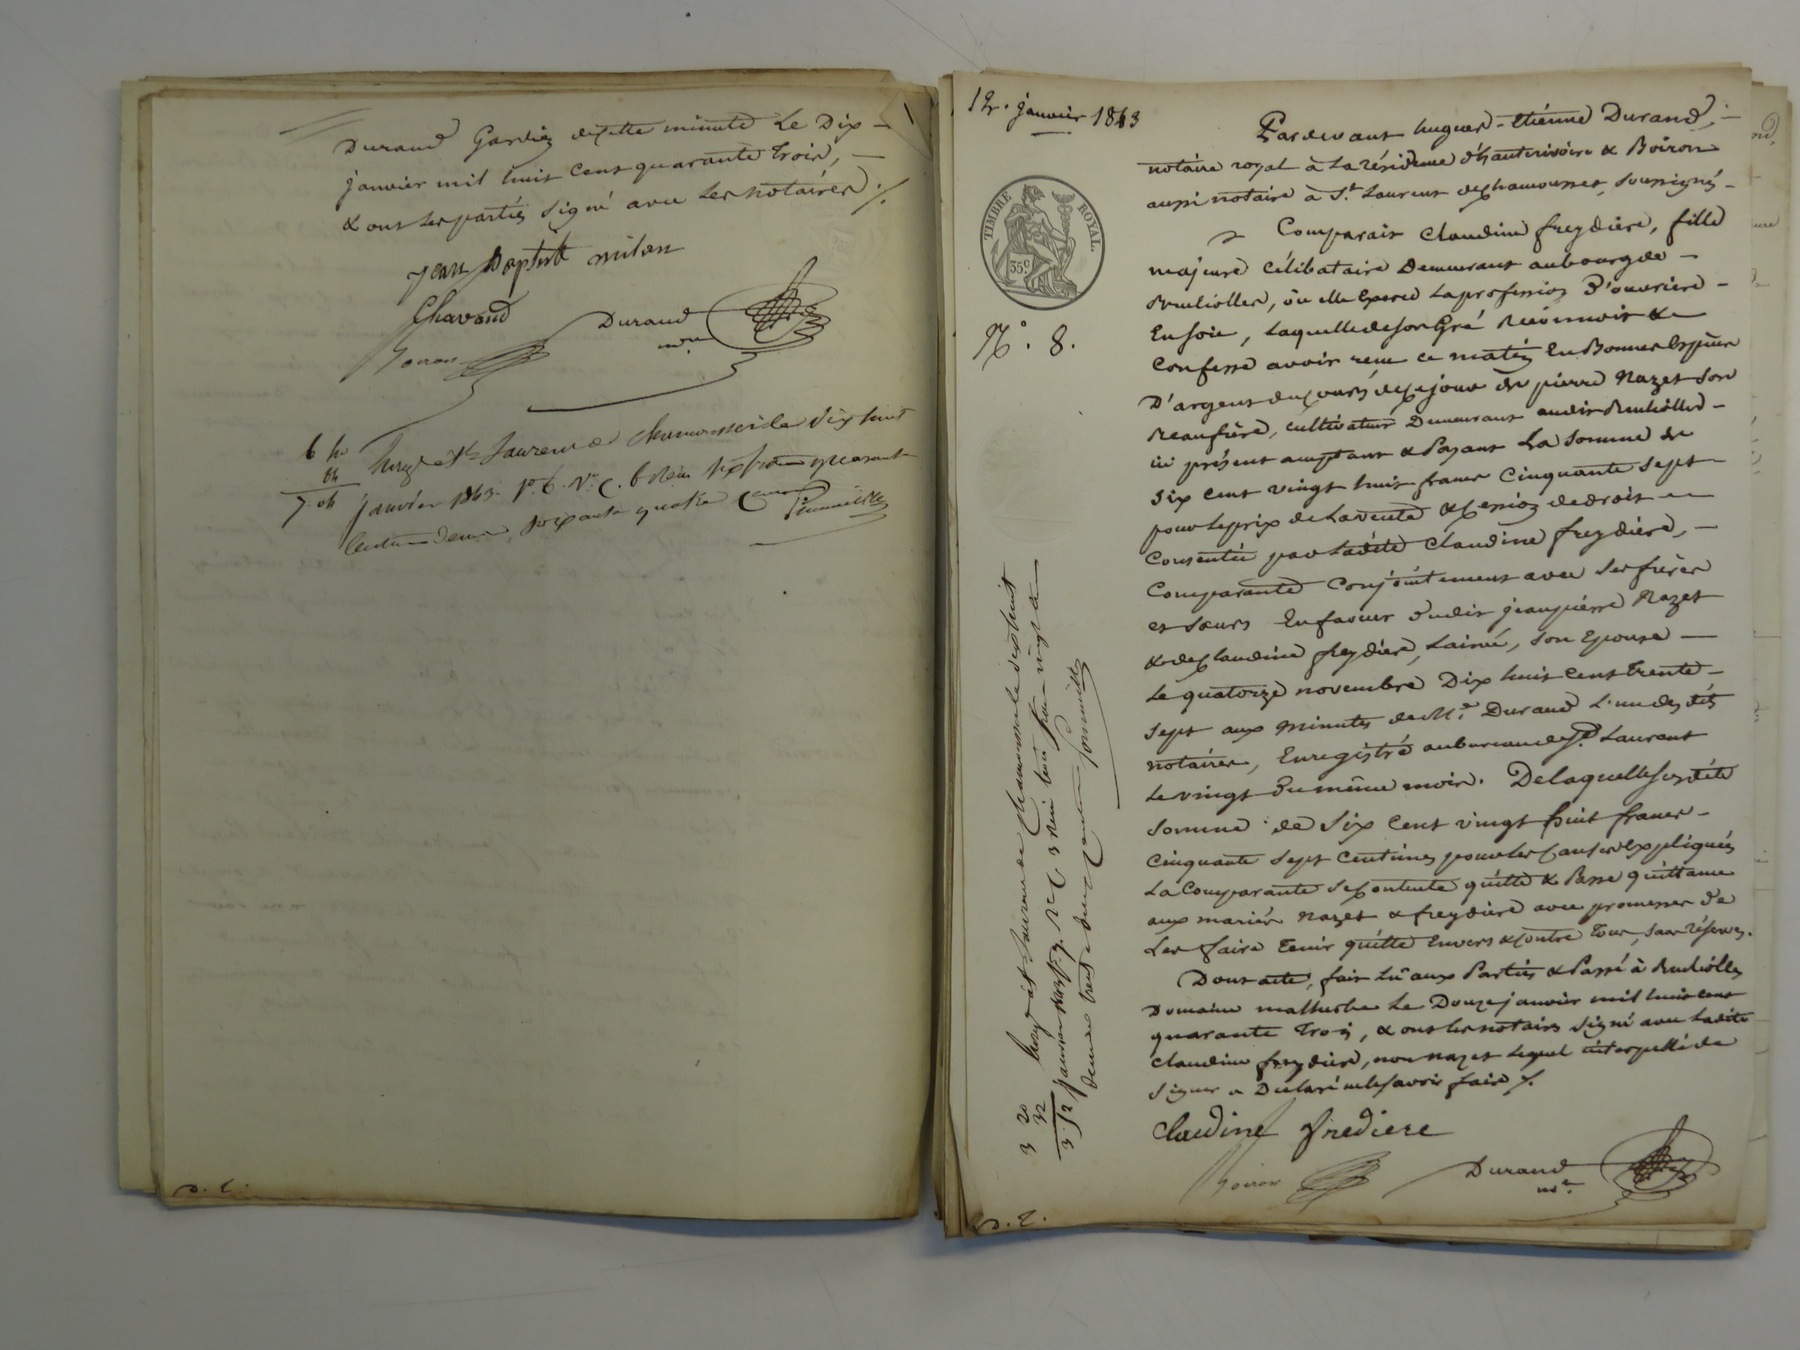 Durand Gardien de cette minute Le Dix
janvier mil huit cent quarante trois,
& ont les parties signé avec Les notaires ./.
jean Baptiste milan
Chavand
Durand
Boiron
nre
6 40
64
7.04
Enregé à St Laurent de chamousset le dix huit
janvier 1843. fo. 6. Vo C. 6 Reçu sept francs
Centimes soixante quatre
D. E.
12. janvier 1843
TIMBRE ROYAL.
35c
No. 8.
Pardevant hugues-Etienne Durand,
notaire royal à La résidence d'hauterivoire & Boiron
aussi notaire à St. Laurent de chamousset, soussignés
Comparait Claudine freydière, fille
majeure célibataire Demeurant au bourg de
Brulliolles, où elle Exerce La profession D'ouvrière
En soie, Laquelle de son Gré Reconnoit &
Confesse avoir reçu ce matin En Bonnes Espèces
D'argent du cours de ce jour de pierre Nazet son
Beaufrère, cultivateur Demeurant audit Brulliolles
ici présent acceptant & Payant La somme de
Six cent vingt huit francs Cinquante sept
pour Le prix de La vente & Cession de droits
Consentie par Ladite Claudine freydière,
Comparante Conjointement avec Ses frères
et sœurs En faveur dudit jean pierre Nazet
& de Claudine freydière, L'ainée, son Epouse
Le quatorze novembre Dix huit Cent Trente
Sept aux minutes de Me. Durand L'un des dts
notaires, Enregistré au bureau de St. Laurent
Le vingt Du même mois. De laquelle susdite
Somme de Six Cent vingt huit francs
Cinquante sept Centimes pour Les Causes Expliquées
La Comparante Se Contente quitte & Passe quittance
aux mariés Nazet & freydière avec promesse de
Les faire Tenir quitte Envers & Contre Tous, sans réserves.
Dont acte, fait Lu aux Parties & Passé à Brulliolles
Domaine malherbe Le Douze janvier mil huit cent
quarante Trois, & ont Les notaires Signé avec Ladite
Claudine freydière, non Nazet Lequel interpellé de
Signer a Déclaré ne Le Savoir faire ./.
Claudine Fredière
Boiron
Durand
nre
3 20
32
3.52
Enregé à St Laurent de Chamousset le dix huit
janvier 1843 fo 7 Ro C 3 Reçu trois francs vingt
D. E.